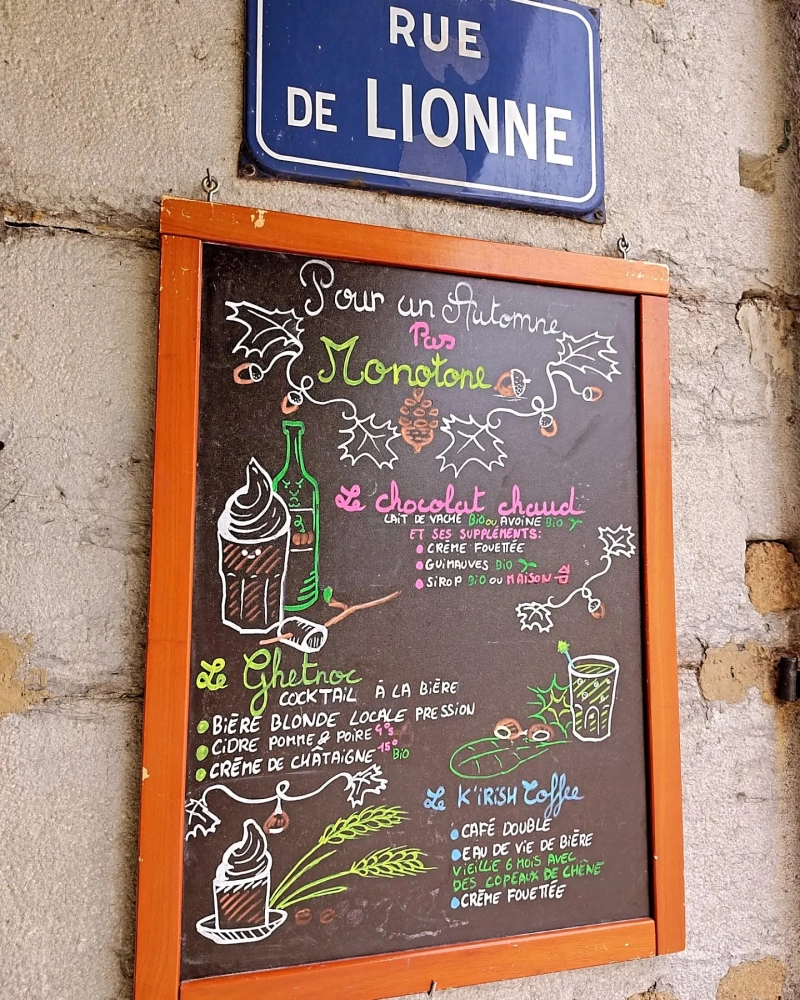 RUE
DE LIONNE
Pour un Automne
Pas
Monotone
Le chocolat chaud
LAIT DE VACHE BiO OU AVOINE BiO
ET SES SUPPLÉMENTS:
CRÈME FOUETTÉE
GUIMAUVES BiO
SIROP BiO OU MAISON
Le Ghetnoc
COCKTAIL À LA BIÈRE
BIÈRE BLONDE LOCALE PRESSION
CIDRE POMME & POIRE 4°5
CRÈME DE CHÂTAIGNE 15° BiO
Le K'IRISH Coffee
CAFÉ DOUBLE
EAU DE VIE DE BIÈRE
VIEILLIE 6 MOIS AVEC
DES COPEAUX DE CHÊNE
CRÈME FOUETTÉE